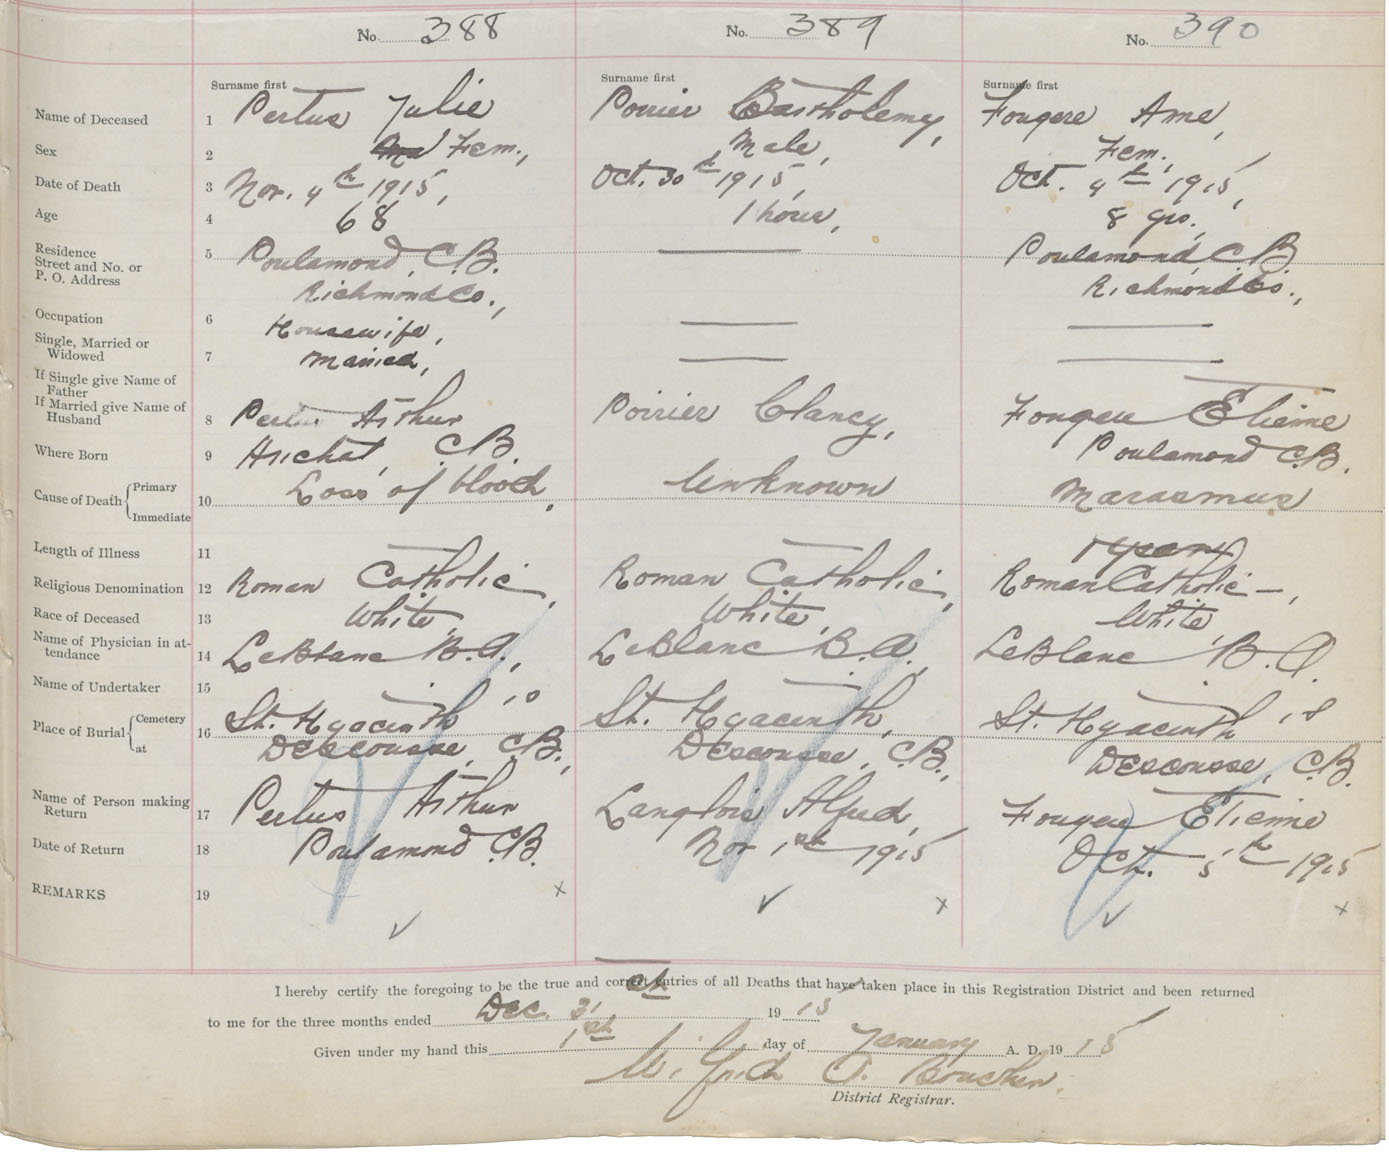 No. 388 No. 389 No. 390
Surname first Surname first Surname first
Name of Deceased 1 Pertus Julie Poirier Bartholemy, Fougere Ame,
Sex 2 Fem., Male, Fem.,
Date of Death 3 Nov. 4th 1915, Oct. 30th 1915, Oct. 4th 1915,
Age 4 68 1 hour, 8 yrs.,
Residence
Street and No. or
P. O. Address 5 Poulamond, C.B. — Poulamond, C.B.
Richmond Co., Richmond Co.,
Occupation 6 Housewife, — —
Single, Married or
Widowed 7 Married, — —
If Single give Name of
Father
If Married give Name of
Husband 8 Pertus Arthur Poirier Clancy, Fougere Etienne
Where Born 9 Arichat, C.B. Poulamond C.B.
Cause of Death { Primary
Immediate 10 Loss of blood, Unknown Marasmus
Length of Illness 11 1 year
Religious Denomination 12 Roman Catholic, Roman Catholic, Roman Catholic –,
Race of Deceased 13 White, White, White,
Name of Physician in at-
tendance 14 LeBlanc B.A., LeBlanc B.A., LeBlanc B.A.
Name of Undertaker 15
Place of Burial { Cemetery
at 16 St. Hyacinth's St. Hyacinth, St. Hyacinth's
Descousse, C.B., Descousse, C.B., Descousse, C.B.
Name of Person making
Return 17 Pertus Arthur Langlois Alfred, Fougere Etienne
Date of Return 18 Poulamond C.B. Nov 1st 1915 Oct. 5th 1915
REMARKS 19 x x x
I hereby certify the foregoing to be the true and correct entries of all Deaths that have taken place in this Registration District and been returned
to me for the three months ended Dec. 31st 1915
Given under my hand this 1st day of January A. D. 1915
District Registrar.